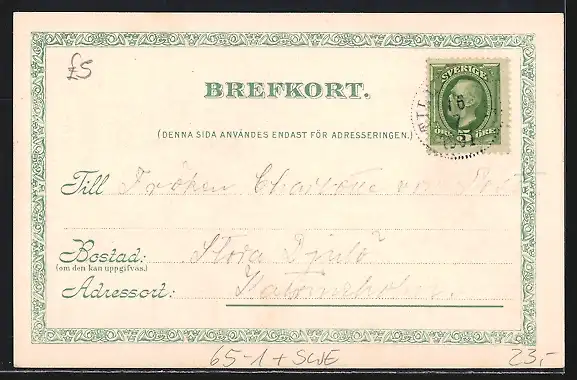 £5
BREFKORT.
SVERIGE
16
ÖRE 5 ÖRE
(DENNA SIDA ANVÄNDES ENDAST FÖR ADRESSERINGEN.)
Till Fröken Charlotte von
Bostad: Stora
(om den kan uppgifvas.)
Adressort:
65-1 + SWE
23,-